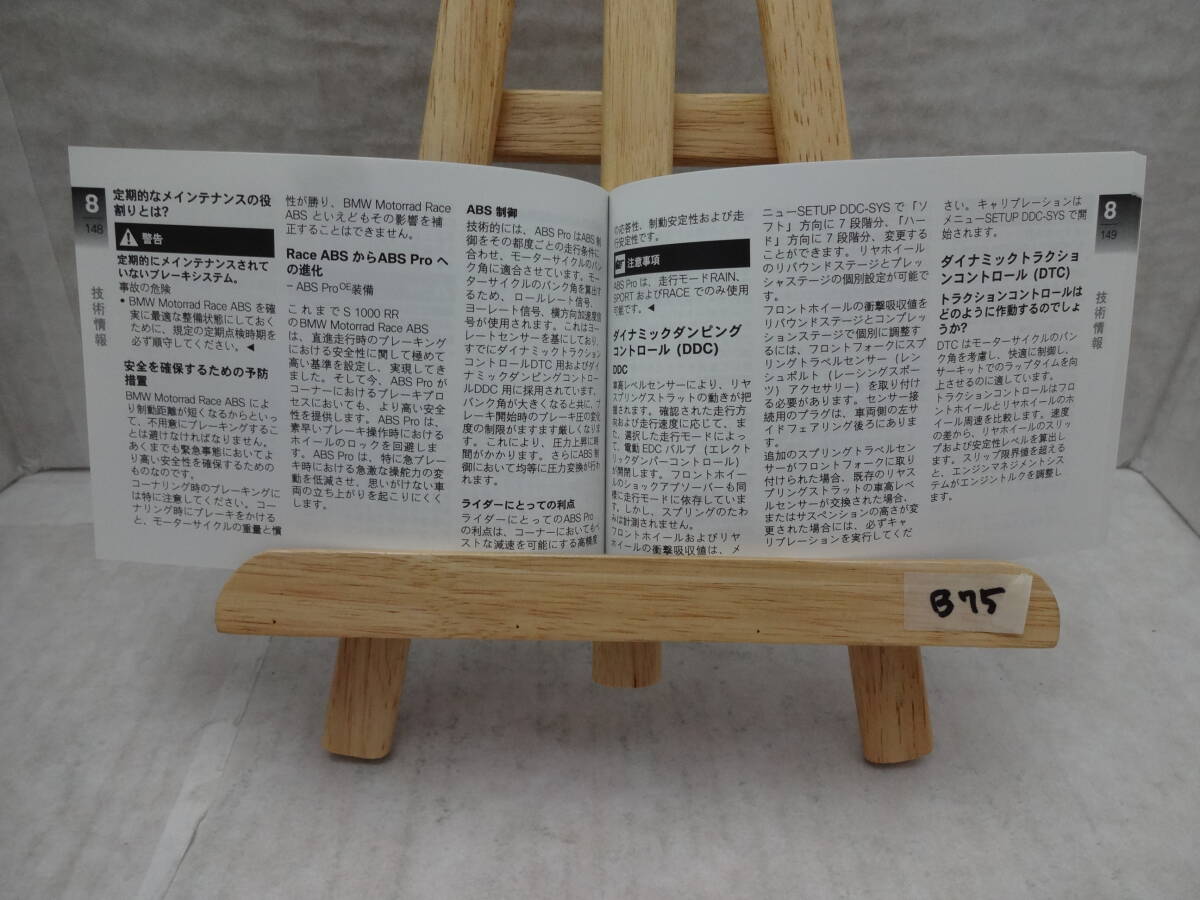 8
148
技術情報
定期的なメインテナンスの役
割りとは?
警告
定期的にメインテナンスされて
いないブレーキシステム。
事故の危険
• BMW Motorrad Race ABS を確
実に最適な整備状態にしておく
ために、規定の定期点検時期を
必ず順守してください。◀
安全を確保するための予防
措置
BMW Motorrad Race ABS によ
り制動距離が短くなるからといっ
て、不用意にブレーキングするこ
とは避けなければなりません。
あくまでも緊急事態においてよ
り高い安全性を確保するための
ものなのです。
コーナリング時のブレーキングに
は特に注意してください。コー
ナリング時にブレーキをかける
と、モーターサイクルの重量と慣
性が勝り、BMW Motorrad Race
ABS といえどもその影響を補
正することはできません。
Race ABS からABS Pro へ
の進化
– ABS ProOE装備
これまで S 1000 RR
のBMW Motorrad Race ABS
は、直進走行時のブレーキング
における安全性に関して極めて
高い基準を設定し、実現してき
ました。そして今、ABS Pro が
コーナーにおけるブレーキプロ
セスにおいても、より高い安全
性を提供します。ABS Pro は、
素早いブレーキ操作時における
ホイールのロックを回避しま
す。ABS Pro は、特に急ブレー
キ時における急激な操舵力の変
動を低減させ、思いがけない車
両の立ち上がりを起こりにくく
します。
ABS 制御
技術的には、ABS Pro はABS 制
御をその都度ごとの走行条件に
合わせ、モーターサイクルのバン
ク角に適合させています。モー
ターサイクルのバンク角を算出す
るため、ロールレート信号、
ヨーレート信号、横方向加速度信
号が使用されます。これはヨー
レートセンサーを基にしており、
すでにダイナミックトラクション
コントロールDTC 用およびダイ
ナミックダンピングコントロー
ルDDC 用に採用されています。
バンク角が大きくなると共に、ブ
レーキ開始時のブレーキ圧の変化
度の制限がますます厳しくなりま
す。これにより、圧力上昇に時
間がかかります。さらにABS 制
御において均等に圧力変換が行わ
れます。
ライダーにとっての利点
ライダーにとってのABS Pro
の利点は、コーナーにおいてもベ
ストな減速を可能にする高精度
の応答性、制動安定性および走
行安定性です。
注意事項
ABS Pro は、走行モードRAIN、
SPORT およびRACE でのみ使用
可能です。◀
ダイナミックダンピング
コントロール (DDC)
DDC
車高レベルセンサーにより、リヤ
スプリングストラットの動きが把
握されます。確認された走行方
向および走行速度に応じて、ま
た、選択した走行モードによっ
て、電動 EDC バルブ（エレクト
リックダンパーコントロール）
が開閉します。フロントホイー
ルのショックアブソーバーも同
様に走行モードに依存していま
す。しかし、スプリングのたわ
みは計測されません。
フロントホイールおよびリヤ
ホイールの衝撃吸収値は、メ
ニューSETUP DDC-SYS で「ソ
フト」方向に 7 段階分、「ハー
ド」方向に 7 段階分、変更する
ことができます。リヤホイール
のリバウンドステージとプレッ
シャステージの個別設定が可能で
す。
フロントホイールの衝撃吸収値を
リバウンドステージとコンプレッ
ションステージで個別に調整す
るには、フロントフォークにスプ
リングトラベルセンサー（レン
シュポルト（レーシングスポー
ツ）アクセサリー）を取り付け
る必要があります。センサー接
続用のプラグは、車両側の左サ
イドフェアリング後ろにありま
す。
追加のスプリングトラベルセン
サーがフロントフォークに取り
付けられた場合、既存のリヤス
プリングストラットの車高レベ
ルセンサーが交換された場合、
またはサスペンションの高さが変
更された場合には、必ずキャ
リブレーションを実行してくだ
さい。キャリブレーションは
メニューSETUP DDC-SYS で開
始されます。
ダイナミックトラクショ
ンコントロール (DTC)
トラクションコントロールは
どのように作動するのでしょ
うか?
DTC はモーターサイクルのバン
ク角を考慮し、快適に制御し、
サーキットでのラップタイムを向
上させるのに適しています。
トラクションコントロールはフロ
ントホイールとリヤホイールのホ
イール周速を比較します。速度
の差から、リヤホイールのスリッ
プおよび安定性レベルを算出し
ます。スリップ限界値を超える
と、エンジンマネジメントシス
テムがエンジントルクを調整し
ます。
8
149
技術情報
B75